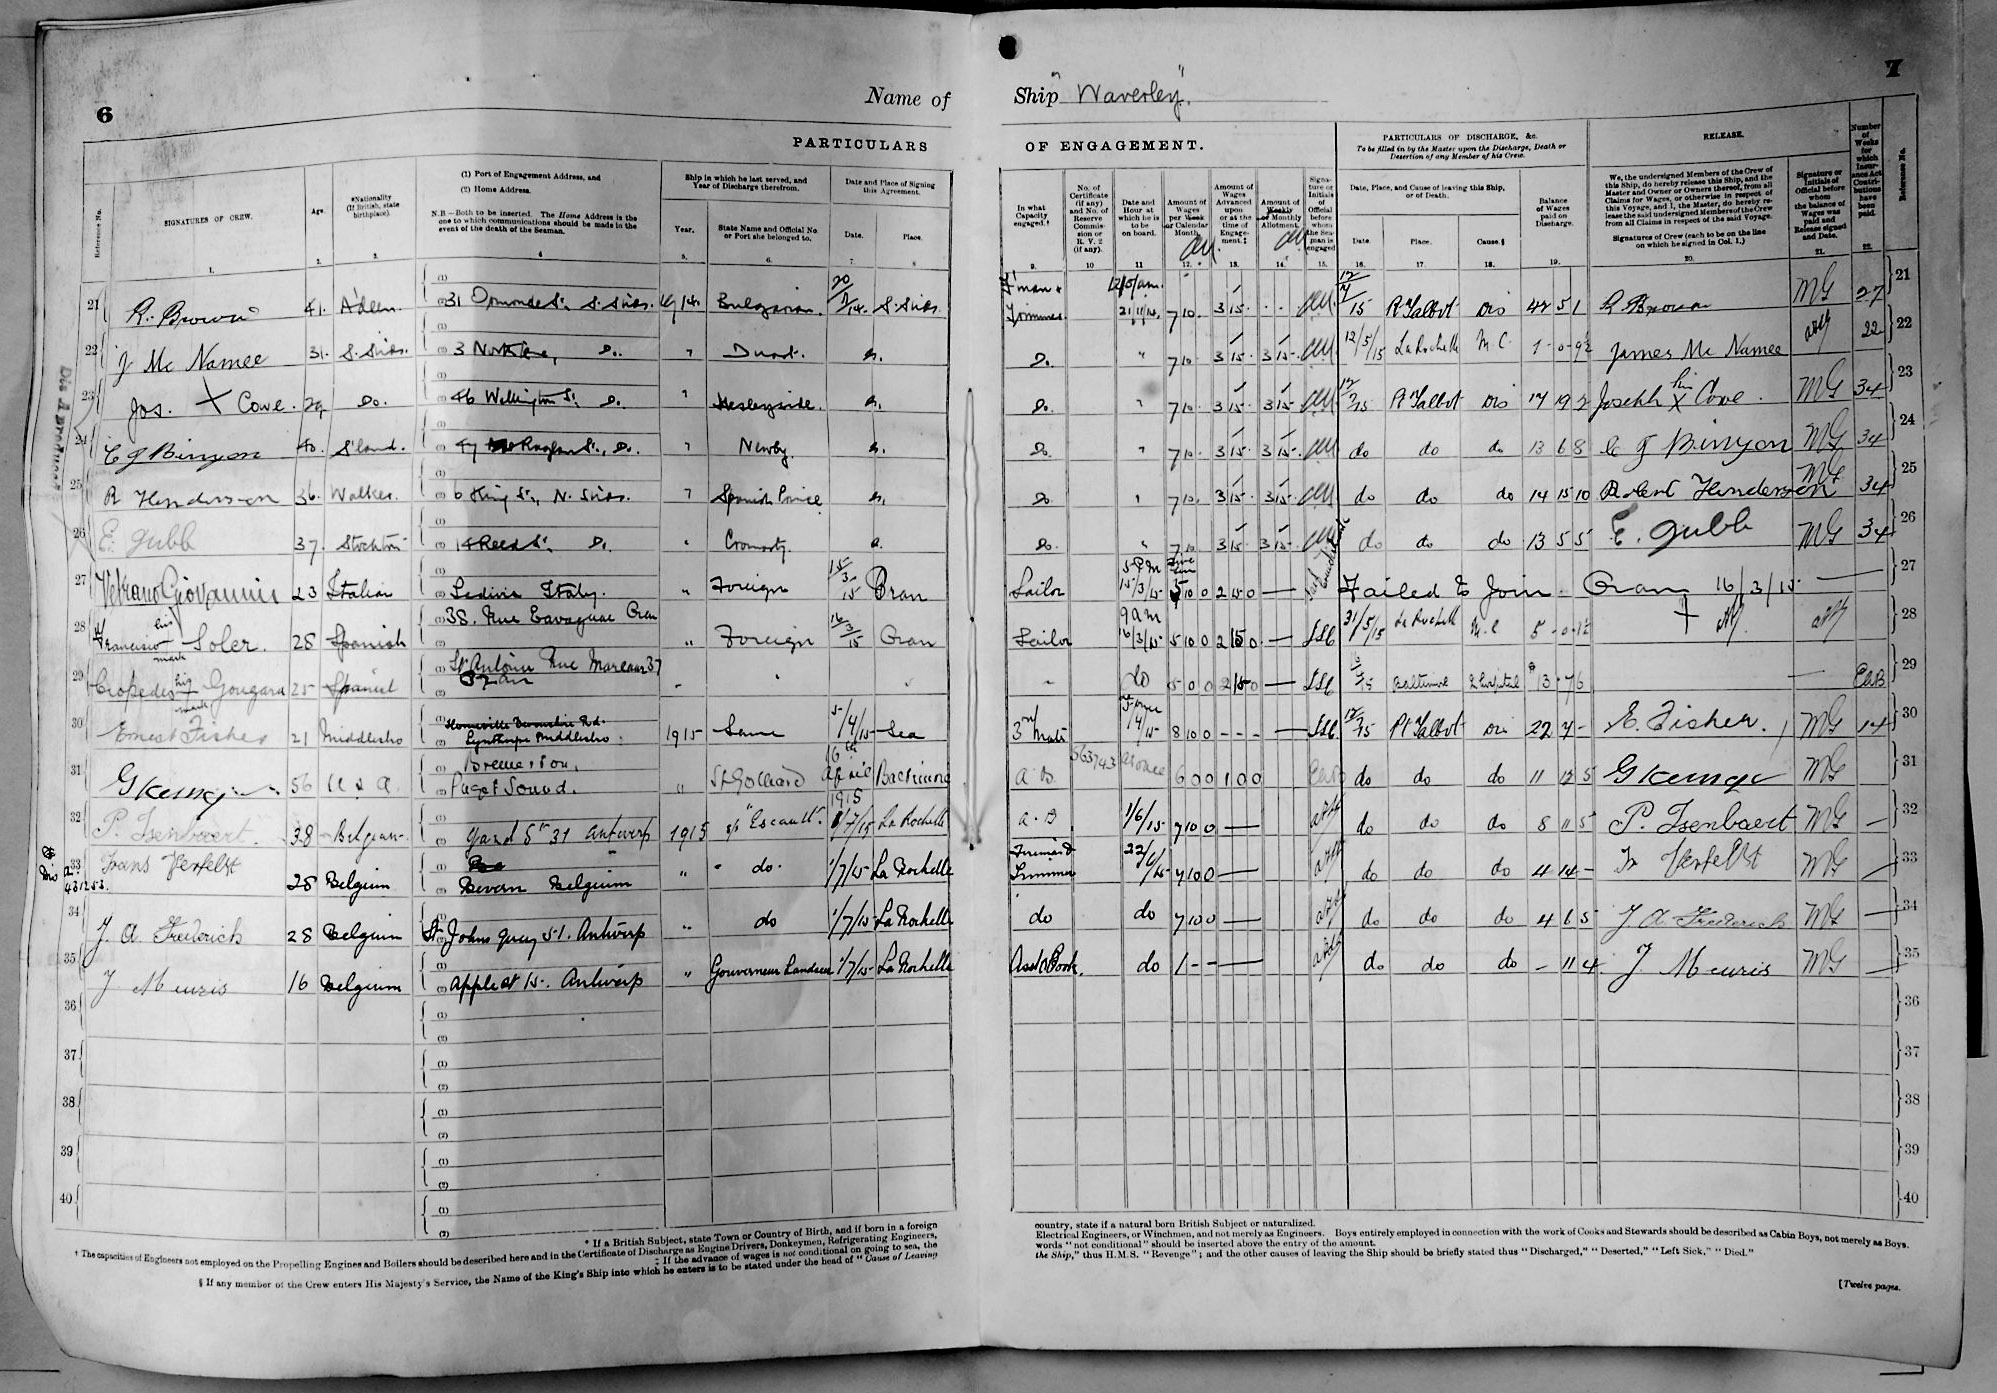 6
Name of
Ship "Waverley".
7
PARTICULARS
OF ENGAGEMENT.
PARTICULARS OF DISCHARGE, &c.
To be filled in by the Master upon the Discharge, Death or Desertion of any Member of his Crew.
RELEASE.
Reference No.
SIGNATURES OF CREW.
Age.
*Nationality (If British, state birthplace).
(1) Port of Engagement Address, and
(2) Home Address.
N.B.—Both to be inserted. The Home Address is the one to which communications should be made in the event of the death of the Seaman.
Ship in which he last served, and Year of Discharge therefrom.
Year.
State Name and Official No. or Port she belonged to.
Date and Place of Signing this Agreement.
Date.
Place.
In what Capacity engaged.†
No. of Certificate (if any) and No. of Reserve Commission or R. V. 2 (if any).
Date and Hour at which he is to be on board.
Amount of Wages per Week or Calendar Month.
Amount of Wages Advanced upon or at the time of Engagement.‡
Amount of Weekly or Monthly Allotment.
Signature or Initials of Official before whom the Seaman is engaged
Date, Place, and Cause of leaving this Ship, or of Death.
Date.
Place.
Cause.§
Balance of Wages paid on Discharge.
We, the undersigned Members of the Crew of this Ship, do hereby release this Ship, and the Master and Owner or Owners thereof, from all Claims for Wages, or otherwise in respect of this Voyage, and I, the Master, do hereby release the said undersigned Members of the Crew from all Claims in respect of the said Voyage.
Signatures of Crew (each to be on the line on which he signed in Col. 1.)
Signature or Initials of Official before whom the balance of Wages was paid and Release signed and Date.
Number of Weeks for which Insurance Act Contributions have been paid.
Reference No.
1. 2. 3. 4 5. 6. 7. 8 9. 10 11 12. 13. 14. 15. 16. 17. 18. 19. 20. 21. 22.
21 R. Brown 41. 31 Ormonde St. S. Shds. 1914. Bulgarian. S. Shds. F'man & Trimmer. 7 10. 3 15. 12/7/15 Pt Talbot Dis 42 5 1 R Brown MG 27 21
22 J Mc Namee 31. S. Shds. 3 Do. " Do. " 7 10 3 15. 3 15. 12/5/15 La Rochelle M.C. James Mc Namee 22 22
23 Jos. X Cowe. 29 Do. 46 Wellington St. Do. " Hesleyside. Do. " 7 10. 3 15. 3 15. 12/7/15 Pt Talbot Dis 17 19 2 Joseph his X Cowe. MG 34 23
24 C J Binyon 40. S'land. 47 Do. " Newby Do. " 7 10. 3 15. 3 15. do do do 13 6 8 C J Binyon MG 34 24
25 R Henderson 36. Walker. 6 King St., N. Shds. " Spanish Prince Do. " 7 10. 3 15. 3 15. do do do 14 15 10 Robert Henderson MG 34 25
26 E. Gubb 37. Stockton Do. " Cromarty. Do. " 7 10 3 15 3 15. do do do 13 5 5 E. Gubb MG 34 26
27 Giovannis 23 Italian Italy. " Foreign 15/3/15 Oran Sailor 5 PM 15/3/15 5 10 0 2 15 0 — Failed to Join. Oran 16/3/15 — 27
28 Francisco his mark Soler. 28 Spanish 38. Rue Cavaignac Oran " Foreign 16/3/15 Oran Sailor 9 am 16/3/15 5 10 0 2 15 0 — 31/5/15 La Rochelle M.C 28
29 his mark Gongora 25 Spanish St. Antoine Rue 37 Oran " " " " do 5 0 0 2 15 0 — Baltimore Hospital 13 7 6 — 29
30 Ernest Fisher 21 Middlesbro Middlesbro. 1915 Same 5/4/15 Sea 3rd Mate 8 10 0 - - - — 12/7/15 Pt Talbot Dis 22 7 - E. Fisher. MG 14 30
31 56 U S A Bremerton, Puget Sound. " St Gothard 16th April 1915 Baltimore A.B. 563743 at once 6 0 0 1 0 0 do do do 11 12 5 MG 31
32 P. Isenbaert. 38 Belgian 31 Antwerp 1915 s/s "Escaut". 1/7/15 La Rochelle A.B. 1/6/15 7 10 0 — do do do 8 11 5 P. Isenbaert MG — 32
33 Dis A 431253. Frans Verfelst 28 Belgium Bevern Belgium " " do. 1/7/15 La Rochelle Fireman & Trimmer 22/6/15 7 10 0 — do do do 4 14 - Fr Verfelst MG — 33
34 J. A. Frederich 28 Belgium St Johns quay 51. Antwerp " do 1/7/15 La Rochelle do do 7 10 0 — do do do 4 6 5 J. A. Frederich MG — 34
35 J Meuris 16 Belgium Antwerp " Gouverneur 1/7/15 La Rochelle Asst Cook. do 1 - - — do do do - 11 4 J Meuris MG — 35
36 36
37 37
38 38
39 39
40 40
* If a British Subject, state Town or Country of Birth, and if born in a foreign country, state if a natural born British Subject or naturalized.
† The capacities of Engineers not employed on the Propelling Engines and Boilers should be described here and in the Certificate of Discharge as Engine Drivers, Donkeymen, Refrigerating Engineers, Electrical Engineers, or Winchmen, and not merely as Engineers. Boys entirely employed in connection with the work of Cooks and Stewards should be described as Cabin Boys, not merely as Boys.
‡ If the advance of wages is not conditional on going to sea, the words "not conditional" should be inserted above the entry of the amount.
§ If any member of the Crew enters His Majesty's Service, the Name of the King's Ship into which he enters is to be stated under the head of "Cause of Leaving the Ship," thus H.M.S. "Revenge"; and the other causes of leaving the Ship should be briefly stated thus "Discharged," "Deserted," "Left Sick," "Died."
[Twelve pages.